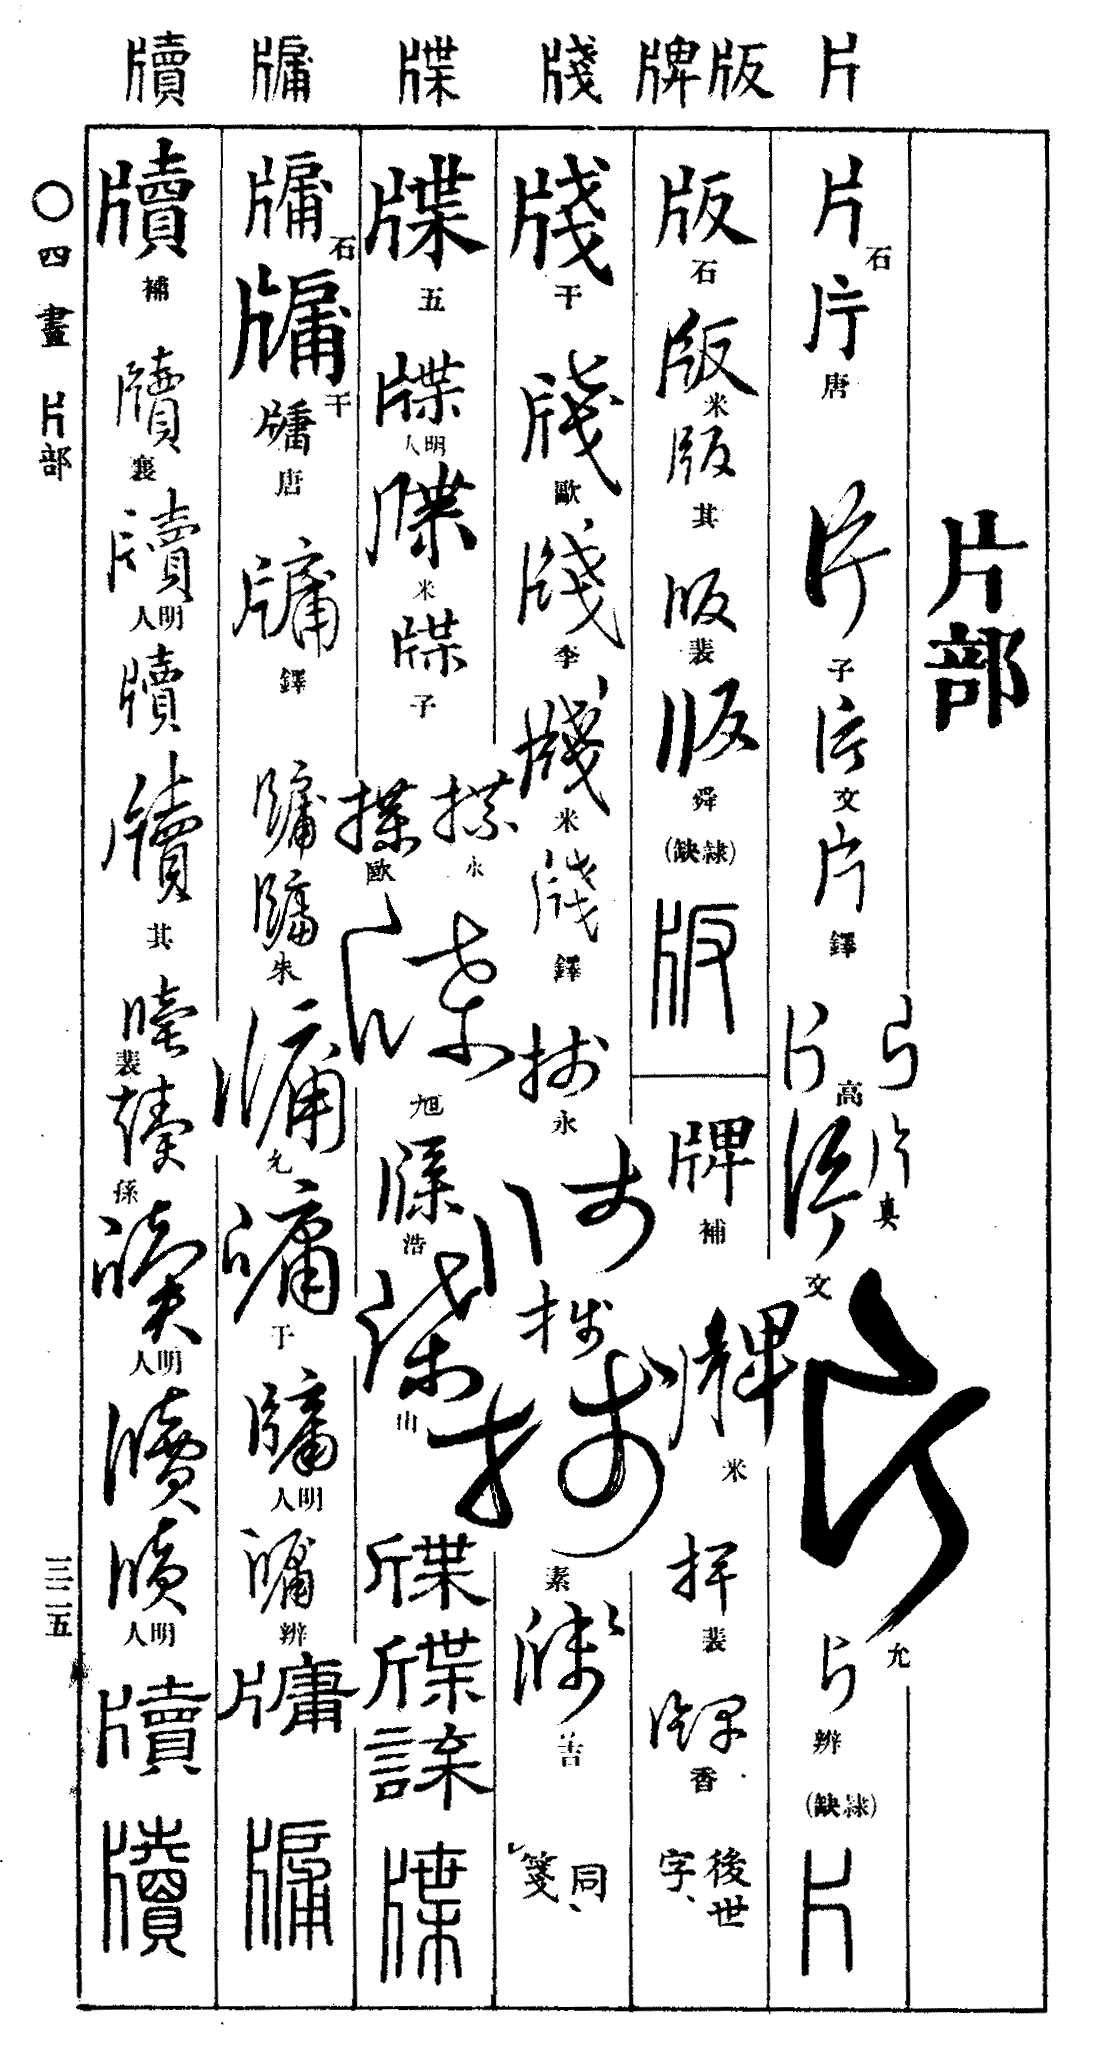 片 版 牌 牋 牒 牖 牘
片部
片 石 片 唐 片 子 片 文 片 鐸 片 片 高 片 真 片 文 片 允 片 辨 (隷缺) 片
版 石 版 米 版 其 版 裴 版 舜 (隷缺) 版
牌 補 牌 米 牌 裴 牌 香 後世字、
牋 干 牋 歐 牋 李 牋 米 牋 鐸 牋 永 牋 牋 牋 素 牋 善 同、箋
牒 五 牒 明人 牒 米 牒 子 牒 永 牒 歐 牒 旭 牒 浩 牒 山 牒 牒 諜 牒
牖 石 牖 干 牖 唐 牖 鐸 牖 牖 朱 牖 允 牖 于 牖 明人 牖 辨 牖 牖
牘 補 牘 襄 牘 明人 牘 牘 其 牘 裴 牘 孫 牘 明人 牘 牘 明人 牘 牘
〇四畫 片部 三二五